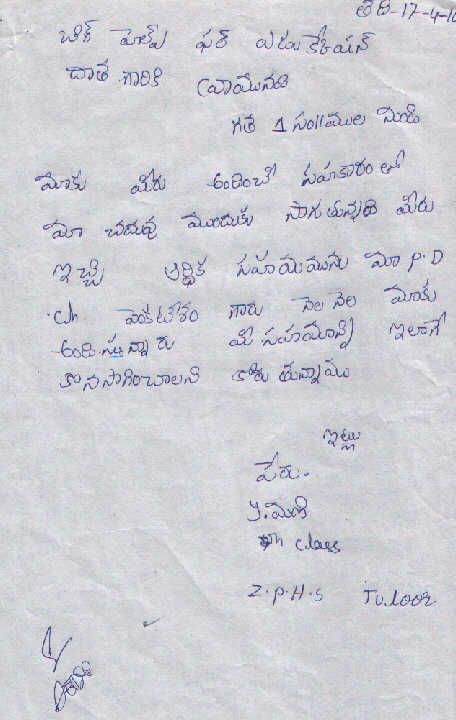 తేది-17-4-10
బిగ్ హెల్ప్ ఫర్ ఎడుకేషన్
దాత గారికి వ్రాయునది
గత 1 సం॥ముల నుండి
మాకు మీరు అందించే సహకారంతో
మా చదువు ముందుకు సాగుతున్నది మీరు
ఇచ్చే ఆర్థిక సహాయమును మా P.D
Ch. వెంకటేశం గారు నెల నెల మాకు
అందిస్తున్నారు మీ సహాయాన్ని ఇలాగే
కొనసాగించాలని కోరుతున్నాము
ఇట్లు
పేరు.
Y.మణి
th class
Z.P.H.S Tuloor